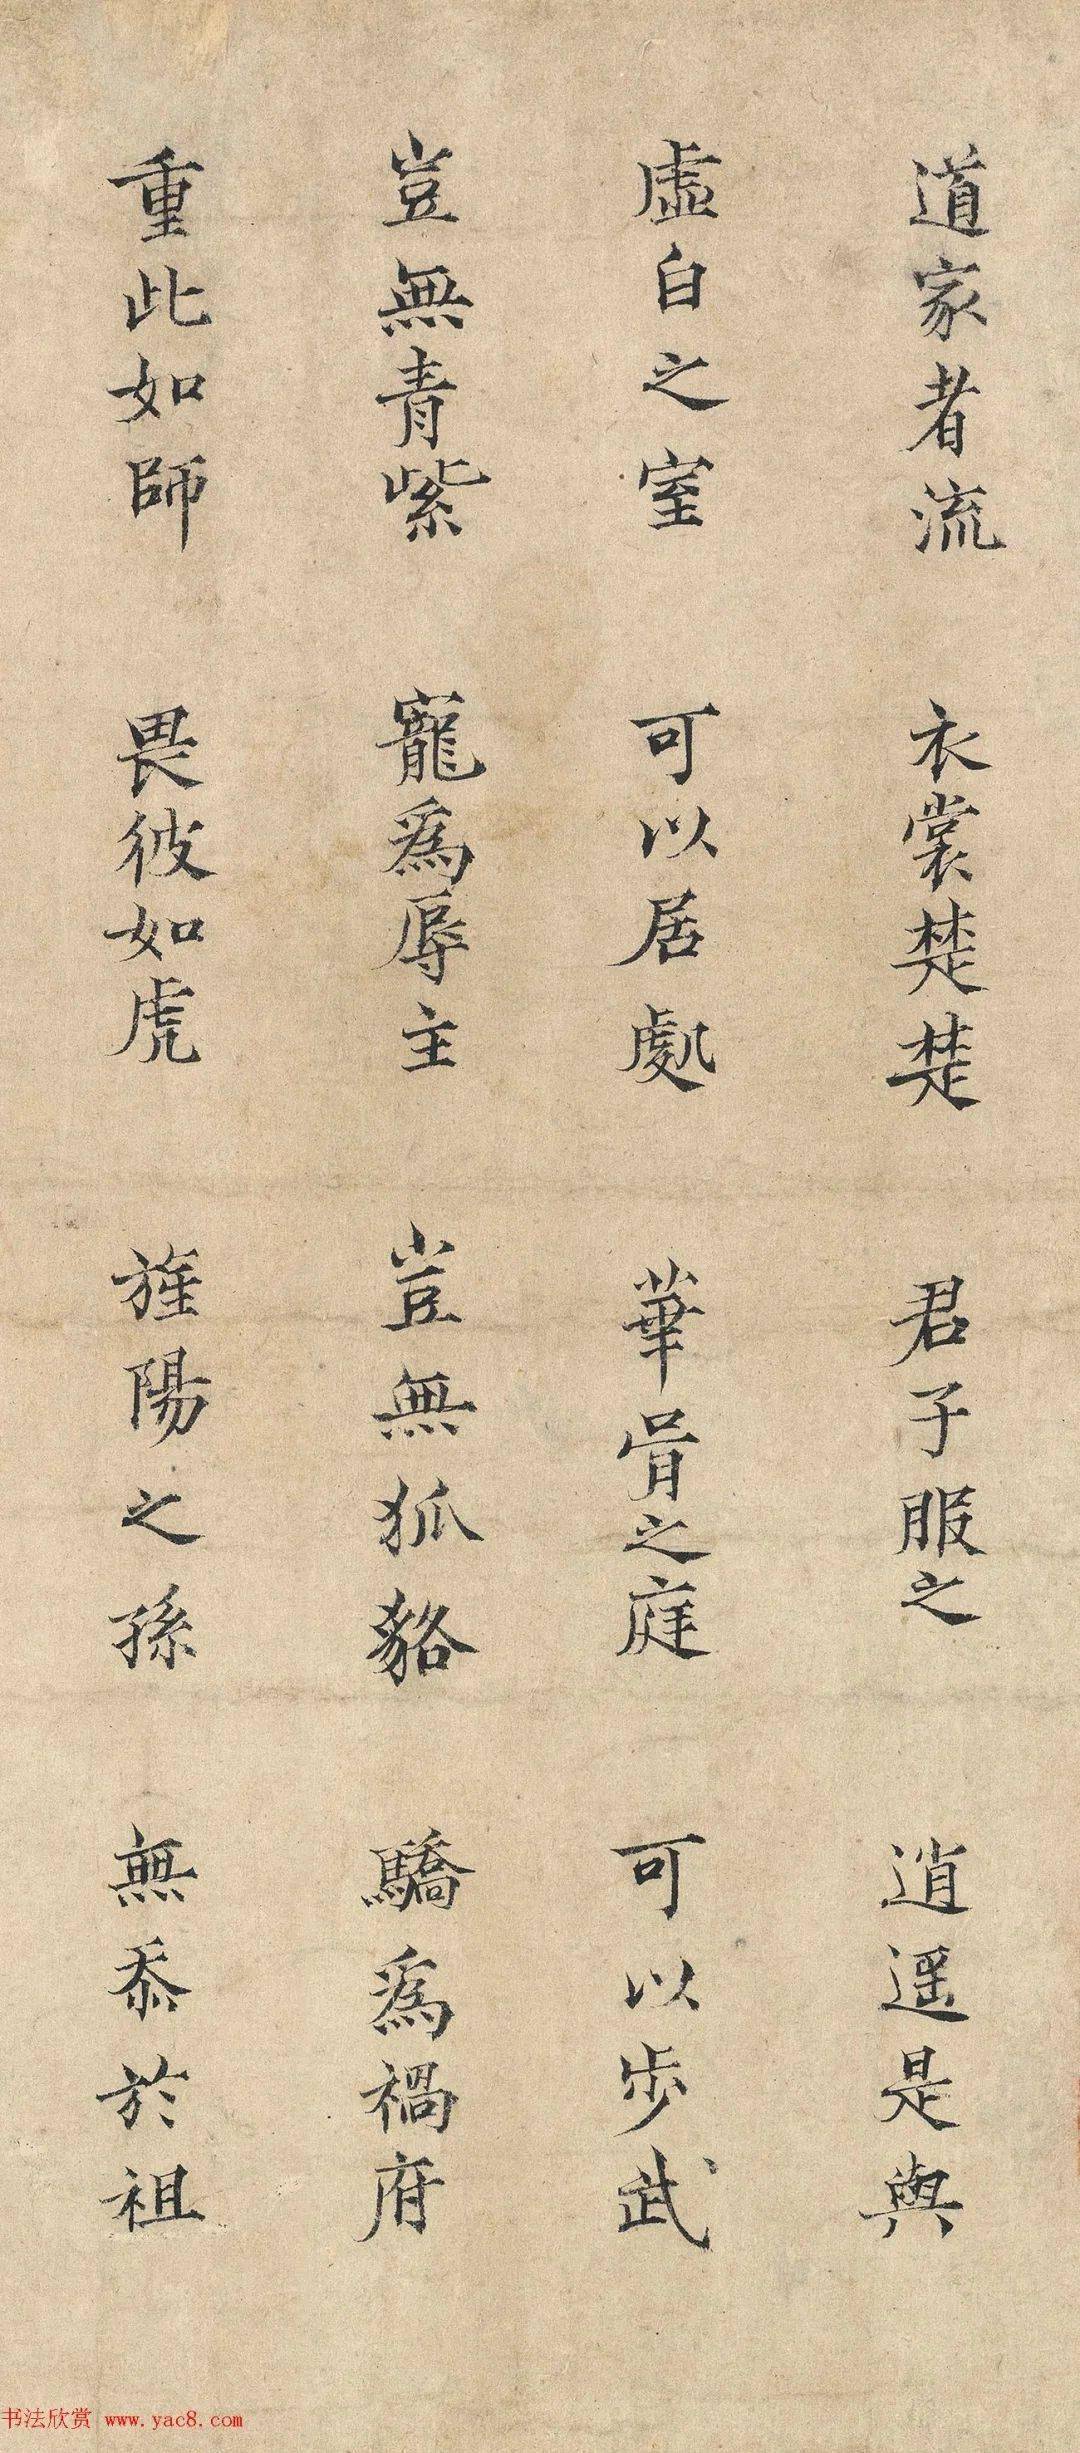 道家者流 衣裳楚楚 君子服之 逍遥是與
虛白之室 可以居處 華胥之庭 可以步武
豈無青紫 寵為辱主 豈無狐貉 驕為禍府
重此如師 畏彼如虎 旌陽之孫 無忝於祖
书法欣赏 www.yac8.com